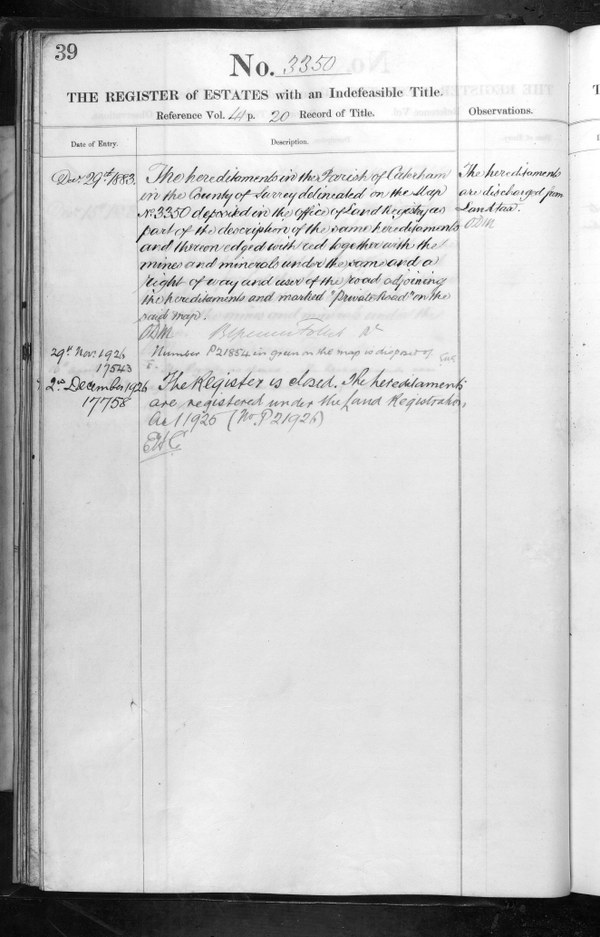 39
No. 3350
THE REGISTER of ESTATES with an Indefeasible Title.
Reference Vol. 4 p. 20 Record of Title.
Observations.
Date of Entry.
Description.
Decr. 29th 1883.
The hereditaments in the Parish of Caterham
in the County of Surrey delineated on the Map
No. 3350 deposited in the office of Land Registry as
part of the description of the same hereditaments
and thereon edged with red together with the
mines and minerals under the same and a
right of way and user of the road adjoining
the hereditaments and marked "Private Road" on the
said map.
The hereditaments
are discharged from
Land tax.
29th Novr. 1926
17543
Number P21854 in green on the map is dispart of
2nd December 1926
17758
The Register is closed. The hereditaments
are registered under the Land Registration
Act 1925 (No. P 21926)